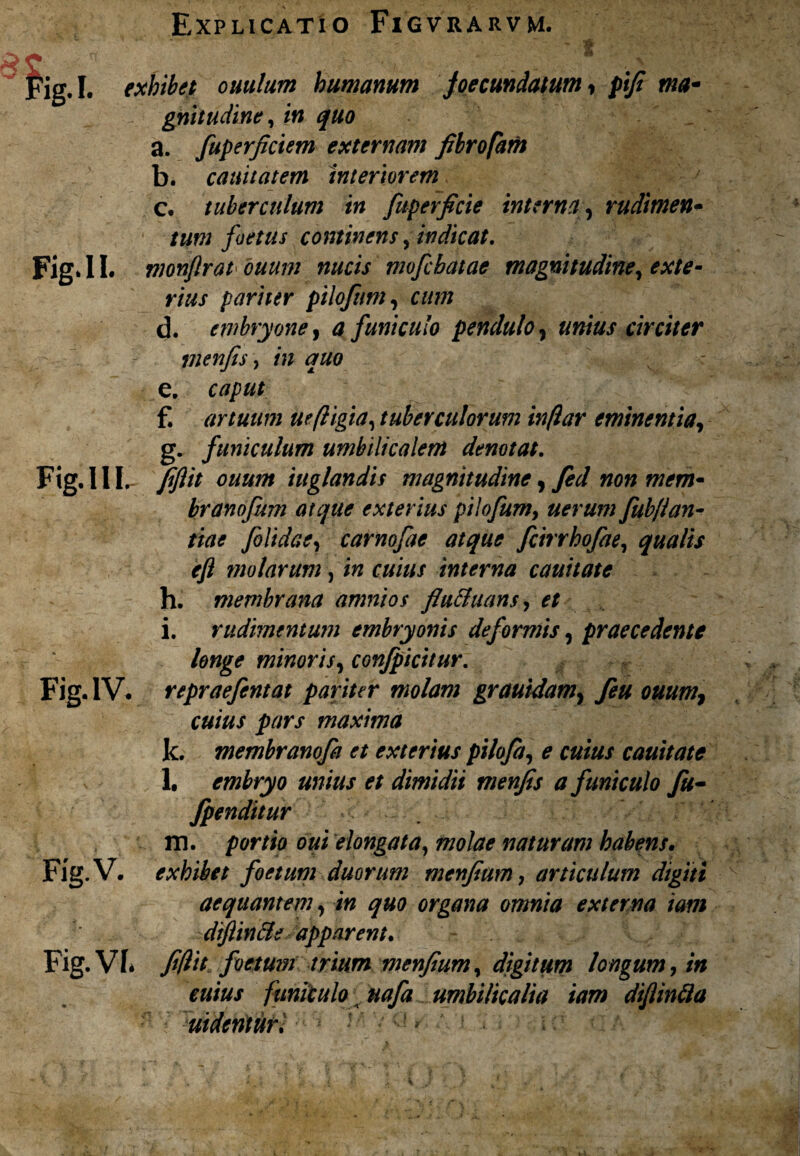 EXPLICATIO FIGVRARVM.
Fig. I. exhibet ouulum humanum foecundatum, piſi ma-
gnitudine, in quo
a. ſuperficiem externam fibroſam
b. cauitatem interiorem
c. tuberculum in ſuperficie interna, rudimen-
tum foetus continens, indicat.
Fig. II. monſtrat ouum nucis moſchatae magnitudine, exte-
rius pariter piloſum, cum
d. embryone, a funiculo pendulo, unius circiter
menſis, in quo
e. caput
f. artuum ueſtigia, tuberculorum inſtar eminentia,
g. funiculum umbilicalem denotat.
Fig. III. ſiſtit ouum iuglandis magnitudine, ſed non mem-
branoſum atque exterius piloſum, uerum ſubſtan-
tiae ſolidae, carnoſae atque ſcirrhoſae, qualis
eſt molarum, in cuius interna cauitate
h. membrana amnios fluctuans, et
i. rudimentum embryonis deformis, praecedente
longe minoris, conſpicitur.
Fig. IV. repraeſentat pariter molam grauidam, ſeu ouum,
cuius pars maxima
k. membranoſa et exterius piloſa, e cuius cauitate
l. embryo unius et dimidii menſis a funiculo ſu-
ſpenditur
m. portio oui elongata, molae naturam habens.
Fig. V. exhibet foetum duorum menſium, articulum digiti
aequantem, in quo organa omnia externa iam
diſtincte apparent.
Fig. VI. ſiſtit foetum trium menſium, digitum longum, in
cuius funiculo uaſa umbilicalia iam diſtincta
uidentur.